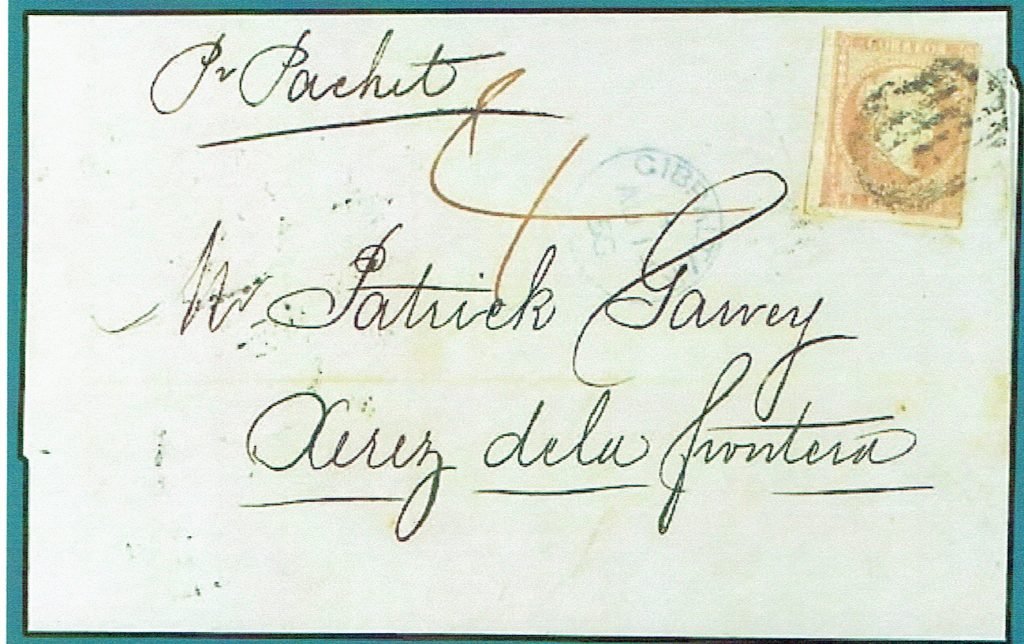 Pr Packet
4
Mr Patrick Garvey
Xerez dela frontera